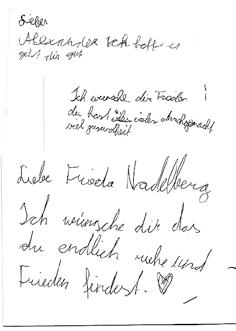 Lieber
Alexander Ich hoffe es
geht dir gut
Ich wünsche dir Frieden !
du hast vieles durchgemacht
viel gesundheit
Liebe Frieda Nadelberg
Ich wünsche dir das
du endlich ruhe und
Frieden findest. ♡